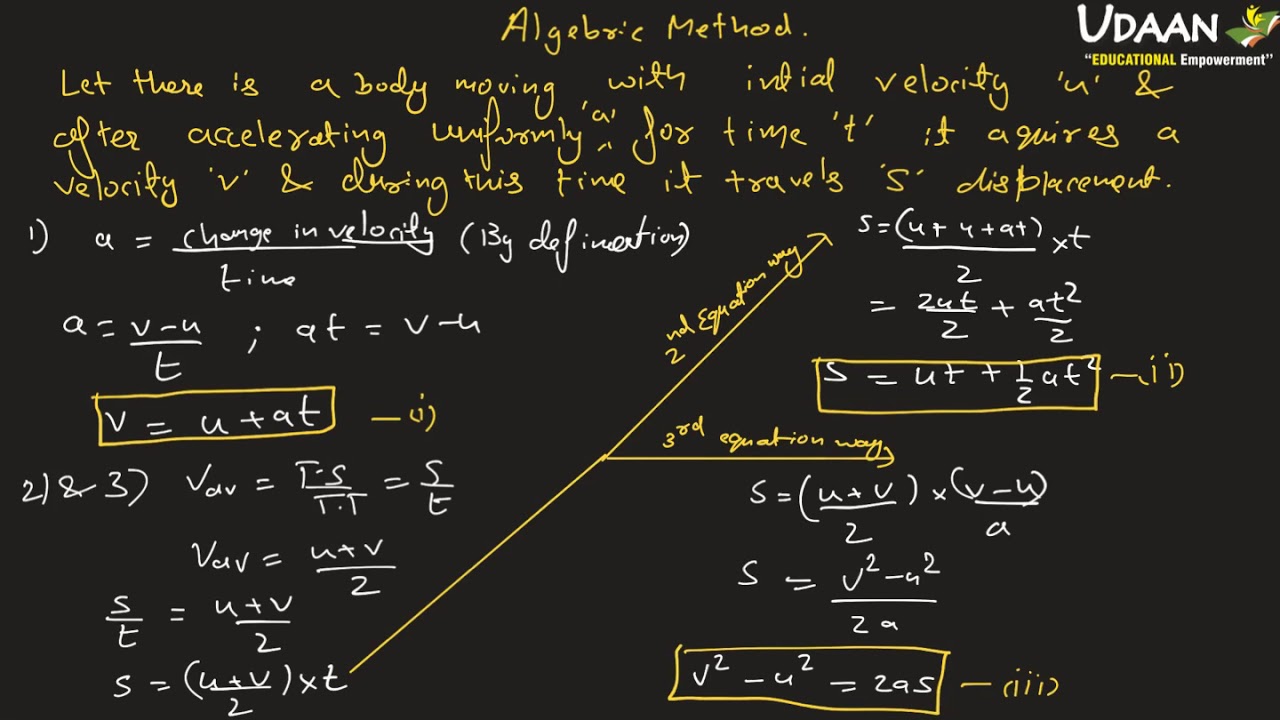 Algebric Method.
UDAAN
"EDUCATIONAL Empowerment"
Let there is a body moving with intial velocity 'u' &
after accelerating uniformly 'a' for time 't' it aquires a
velocity 'v' & during this time it travels 'S' displacement.
1) a = change in velocity / time (By defination)
a = v-u / t ; at = v-u
v = u + at — (i)
2) & 3) Vav = T.S / T.T = S / t
Vav = u+v / 2
S / t = u+v / 2
S = (u+v / 2) × t
2nd Equation way
S = (u+u+at) / 2 × t
= 2ut / 2 + at² / 2
S = ut + 1/2 at² — (ii)
3rd equation way
S = (u+v / 2) × (v-u) / a
S = v² - u² / 2a
v² - u² = 2as — (iii)